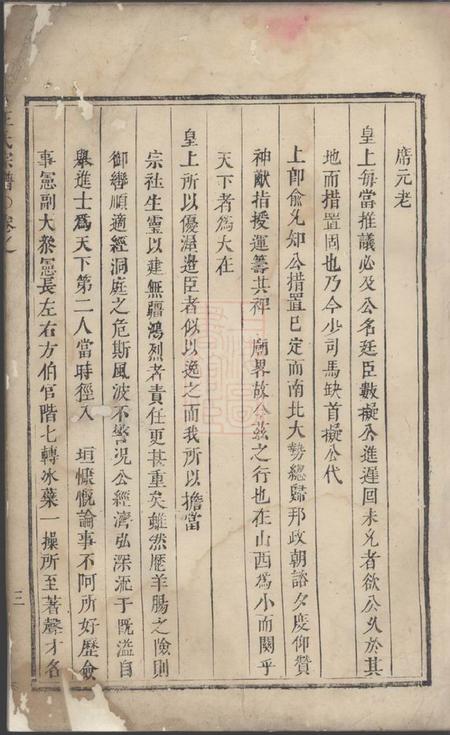 席元老
皇上每當推議必及公名廷臣數擬公進遲回未允者欲公久於其
地而措置固也乃今少司馬缺首擬公代
上卽兪允知公措置已定而南北大勢總歸邦政朝諮夕度仰贊
神猷指授運籌其禆 廟畧故公茲之行也在山西爲小而關乎
天下者爲大在
皇上所以優渥邊臣者似以逸之而我所以擔當
宗社生靈以建無疆鴻烈者責任更甚重矣雖然歷羊腸之險則
御轡順適經洞庭之危斯風波不警況公經濟弘深沉于旣溢自
舉進士爲天下第二人當時徑入 垣慷慨論事不阿所好歷僉
事憲副大叅憲長左右方伯官階七轉氷蘗一操所至著聲才名
王氏宗譜 卷之
三